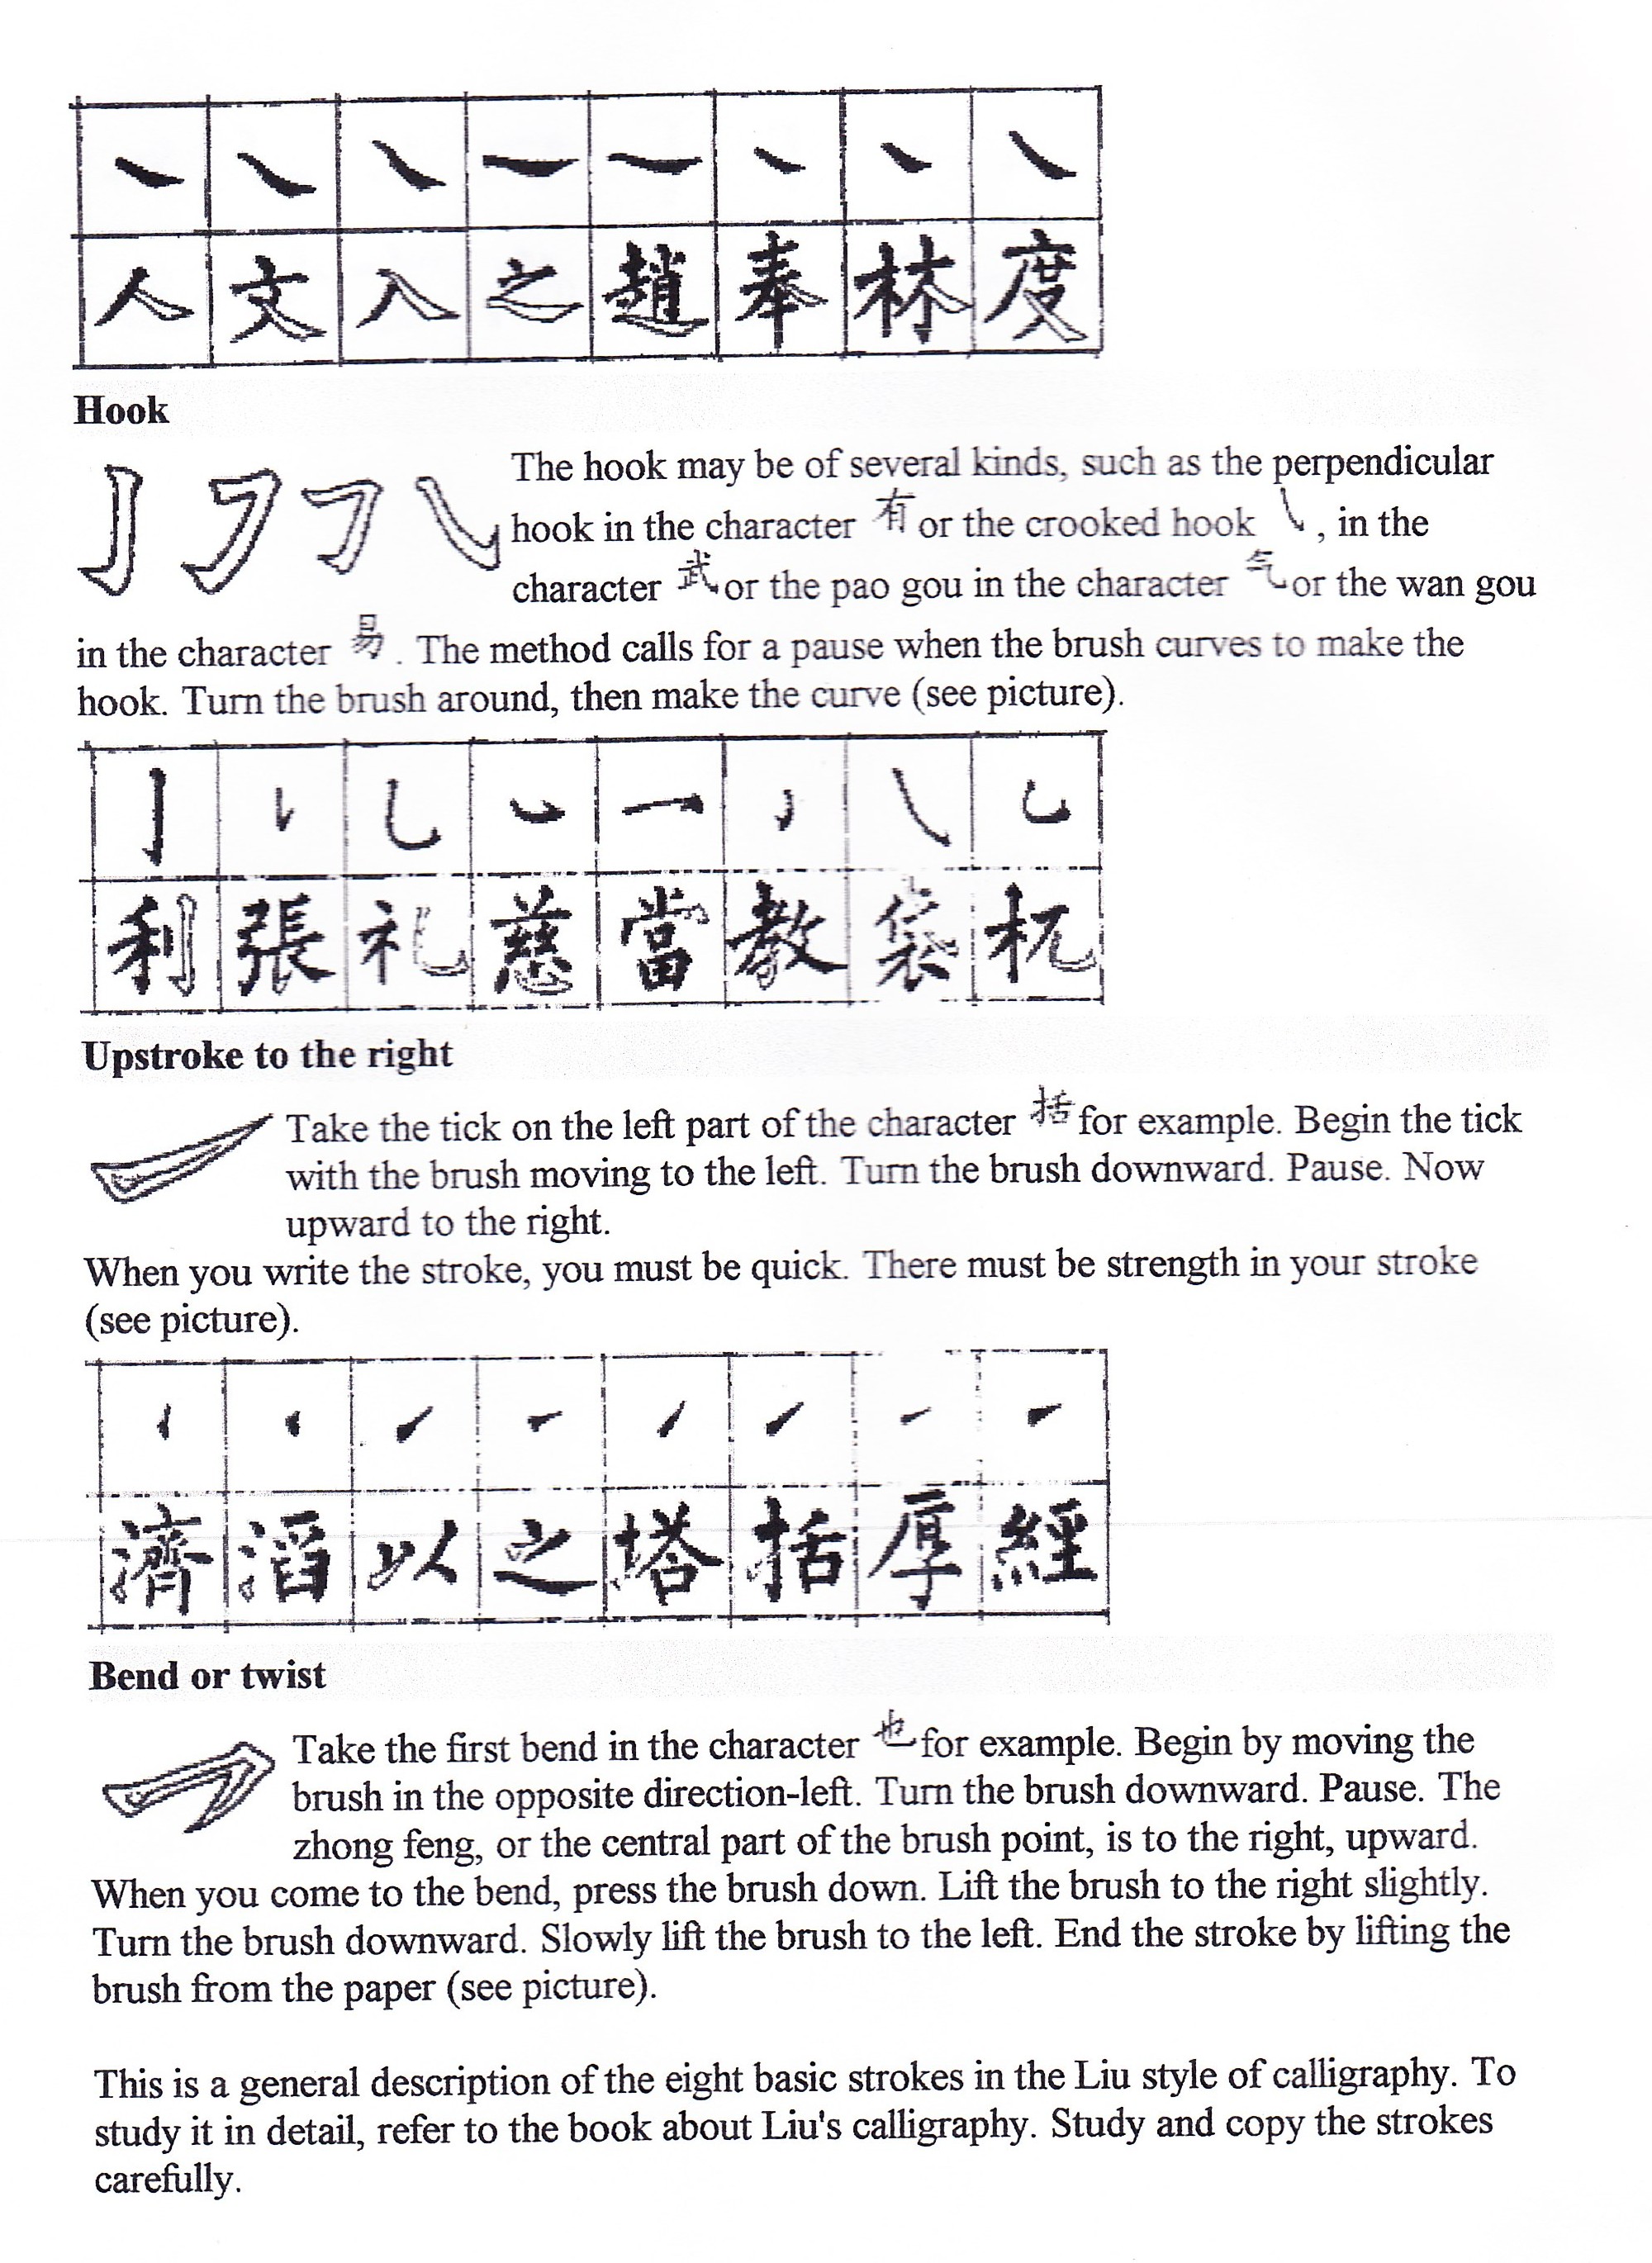 人 文 入 之 趙 奉 林 度
Hook
The hook may be of several kinds, such as the perpendicular
hook in the character 有 or the crooked hook ㇂, in the
character 武 or the pao gou in the character 气 or the wan gou
in the character 易. The method calls for a pause when the brush curves to make the
hook. Turn the brush around, then make the curve (see picture).
利 張 礼 慈 當 教 袋
Upstroke to the right
Take the tick on the left part of the character 括 for example. Begin the tick
with the brush moving to the left. Turn the brush downward. Pause. Now
upward to the right.
When you write the stroke, you must be quick. There must be strength in your stroke
(see picture).
濟 滔 以 之 塔 括 厚 經
Bend or twist
Take the first bend in the character 也 for example. Begin by moving the
brush in the opposite direction-left. Turn the brush downward. Pause. The
zhong feng, or the central part of the brush point, is to the right, upward.
When you come to the bend, press the brush down. Lift the brush to the right slightly.
Turn the brush downward. Slowly lift the brush to the left. End the stroke by lifting the
brush from the paper (see picture).
This is a general description of the eight basic strokes in the Liu style of calligraphy. To
study it in detail, refer to the book about Liu's calligraphy. Study and copy the strokes
carefully.